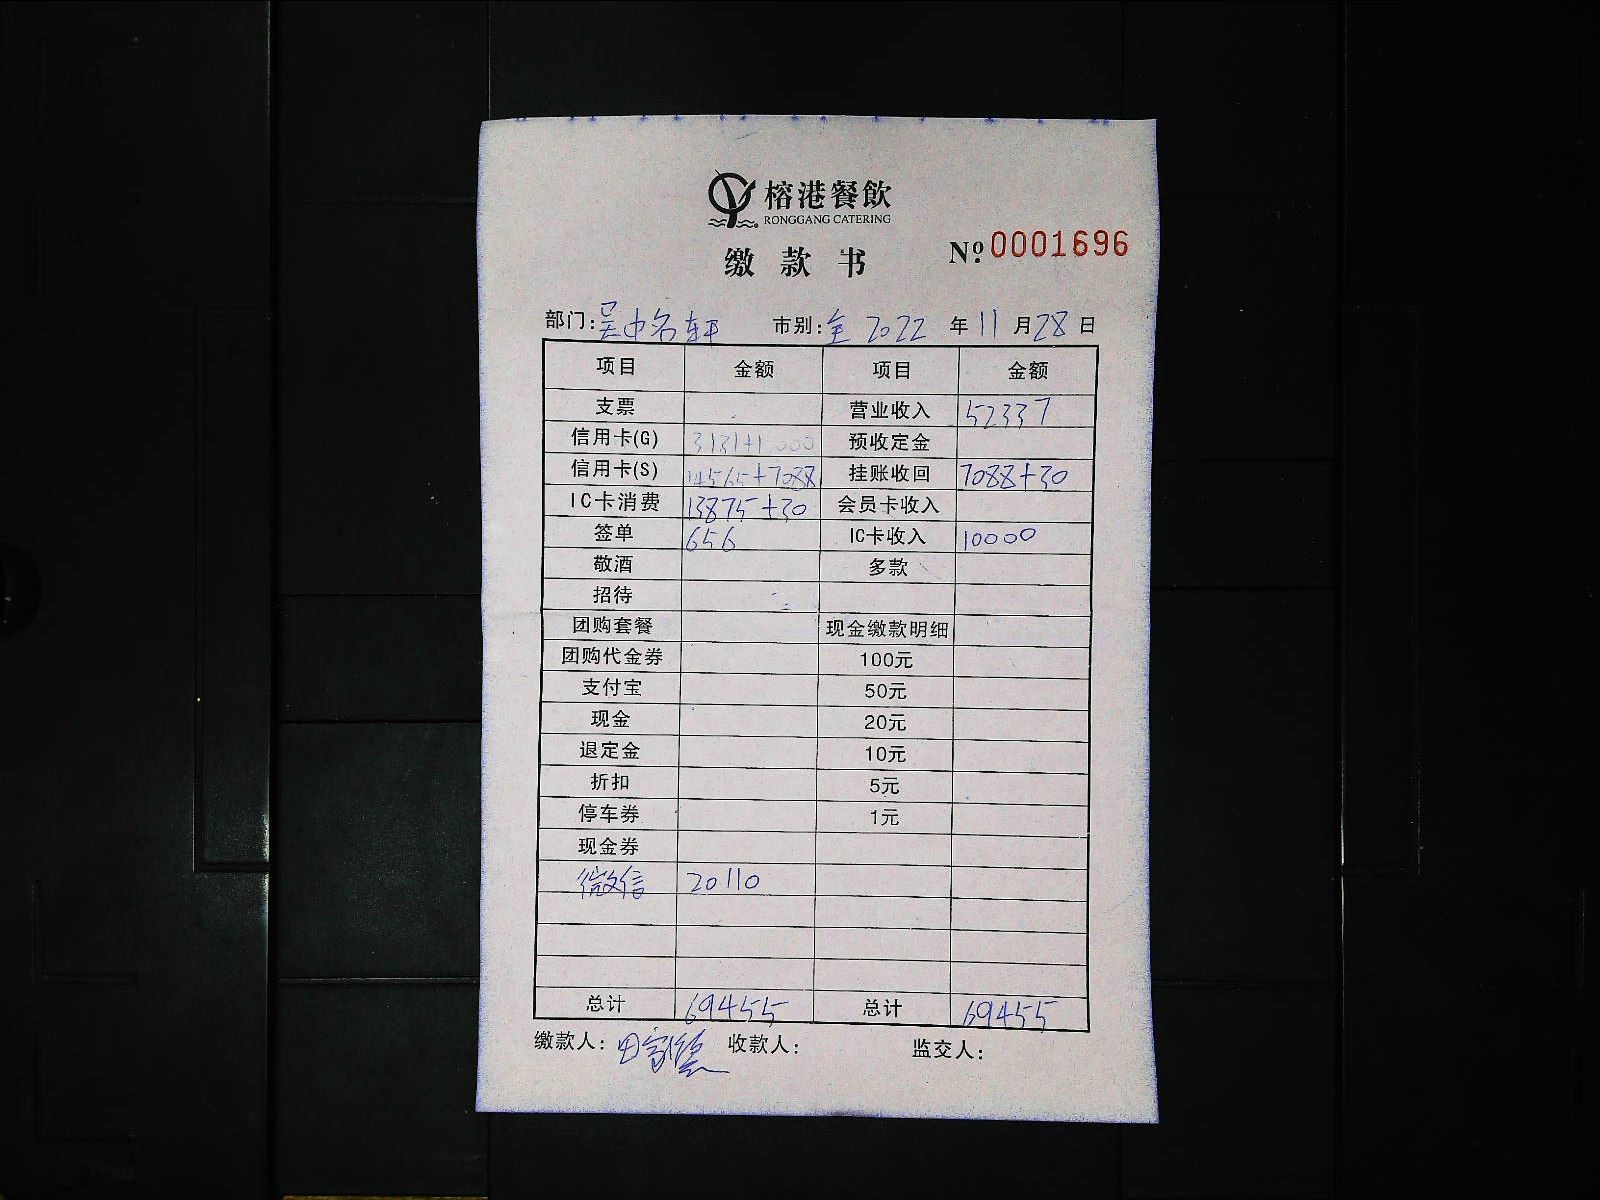 榕港餐飲
RONGGANG CATERING
缴款书 Nº 0001696
部门:吴中名轩 市别:全 2022 年 11 月 28 日
项目 金额 项目 金额
支票 营业收入 52337
信用卡(G) 3131+10000 预收定金
信用卡(S) 14565+7088 挂账收回 7088+30
IC卡消费 13875+30 会员卡收入
签单 656 IC卡收入 10000
敬酒 多款
招待
团购套餐 现金缴款明细
团购代金券 100元
支付宝 50元
现金 20元
退定金 10元
折扣 5元
停车券 1元
现金券
微信 20110
总计 69455 总计 69455
缴款人: 收款人: 监交人: